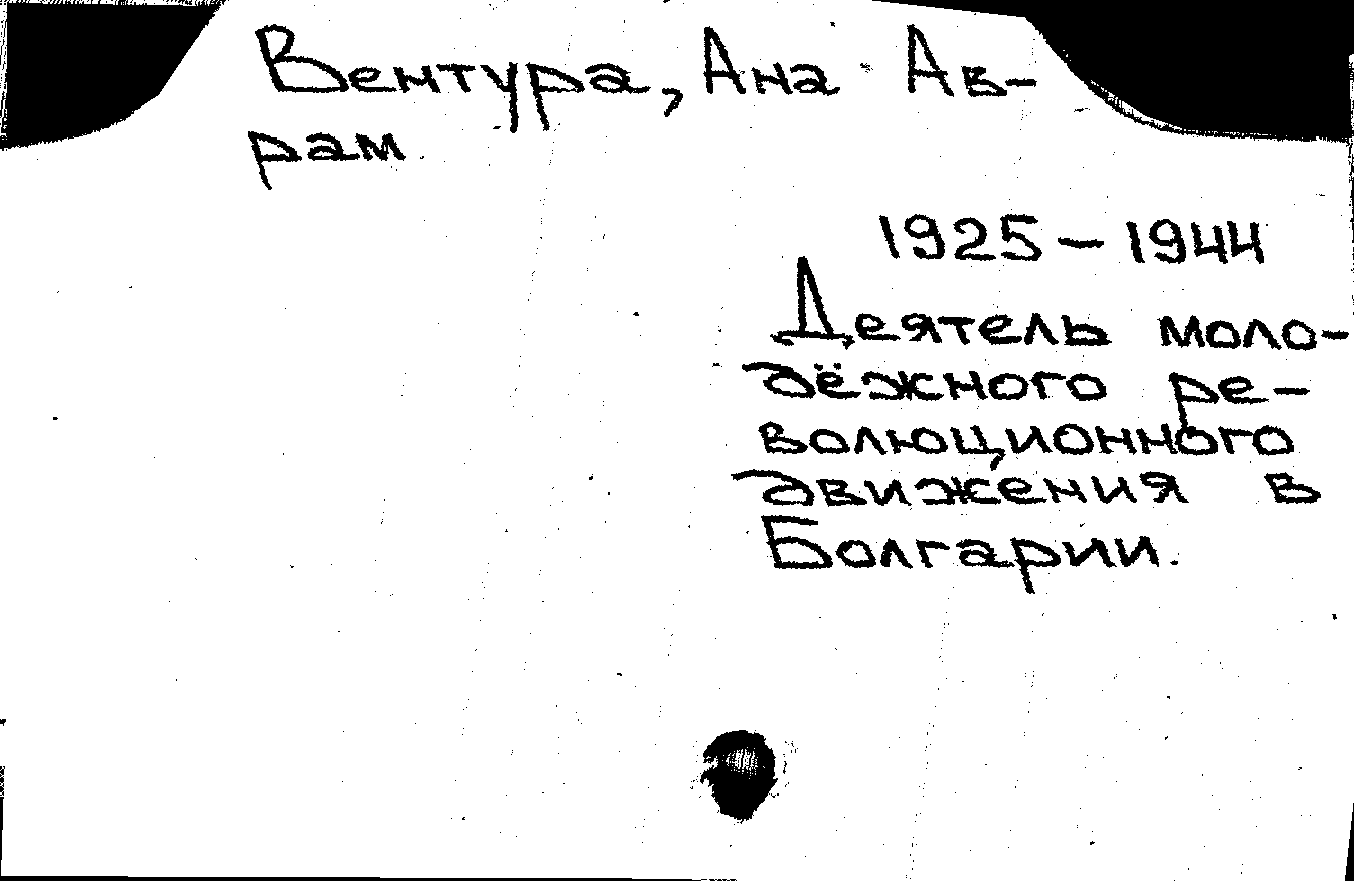 Вентура, Ана Ав-
рам
1925 – 1944
Деятель моло-
дёжного ре-
волюционного
движения в
Болгарии.